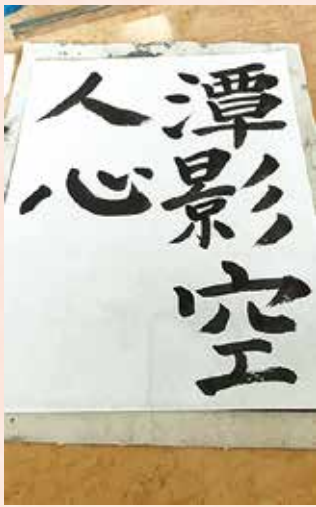 潭影空
人心